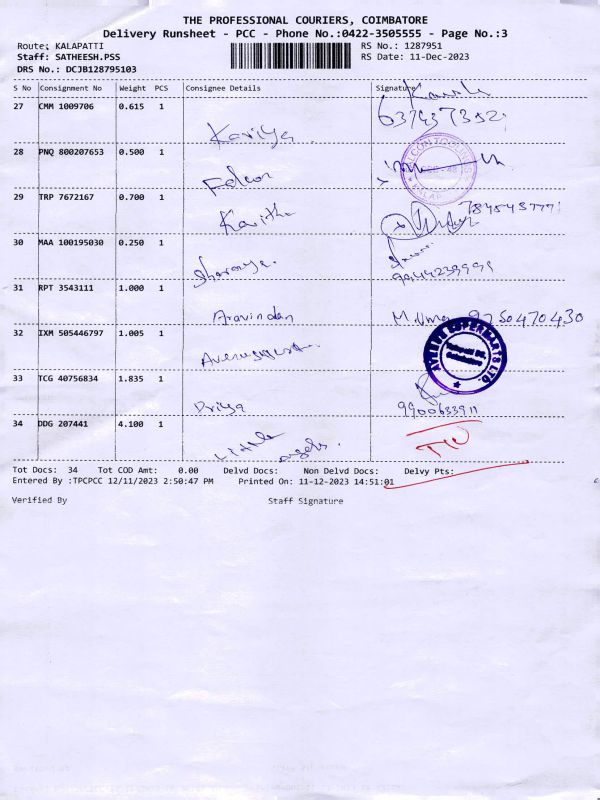 THE PROFESSIONAL COURIERS, COIMBATORE
Delivery Runsheet - PCC - Phone No.:0422-3505555 - Page No.:3
Route: KALAPATTI RS No.: 1287951
Staff: SATHEESH.PSS RS Date: 11-Dec-2023
DRS No.: DCJB128795103
S No Consignment No Weight PCS Consignee Details Signature
27 CMM 1009706 0.615 1
Kaviya
28 PNQ 800207653 0.500 1
Falcon
29 TRP 7672167 0.700 1
Kavitha
30 MAA 100195030 0.250 1
Sharanya.
31 RPT 3543111 1.000 1
Aravindan 9750470430
32 IXM 505446797 1.005 1
33 TCG 40756834 1.835 1
Priya 9900633911
34 DDG 207441 4.100 1
Little angels.
Tot Docs: 34 Tot COD Amt: 0.00 Delvd Docs: Non Delvd Docs: Delvy Pts:
Entered By :TPCPCC 12/11/2023 2:50:47 PM Printed On: 11-12-2023 14:51:01
Verified By Staff Signature